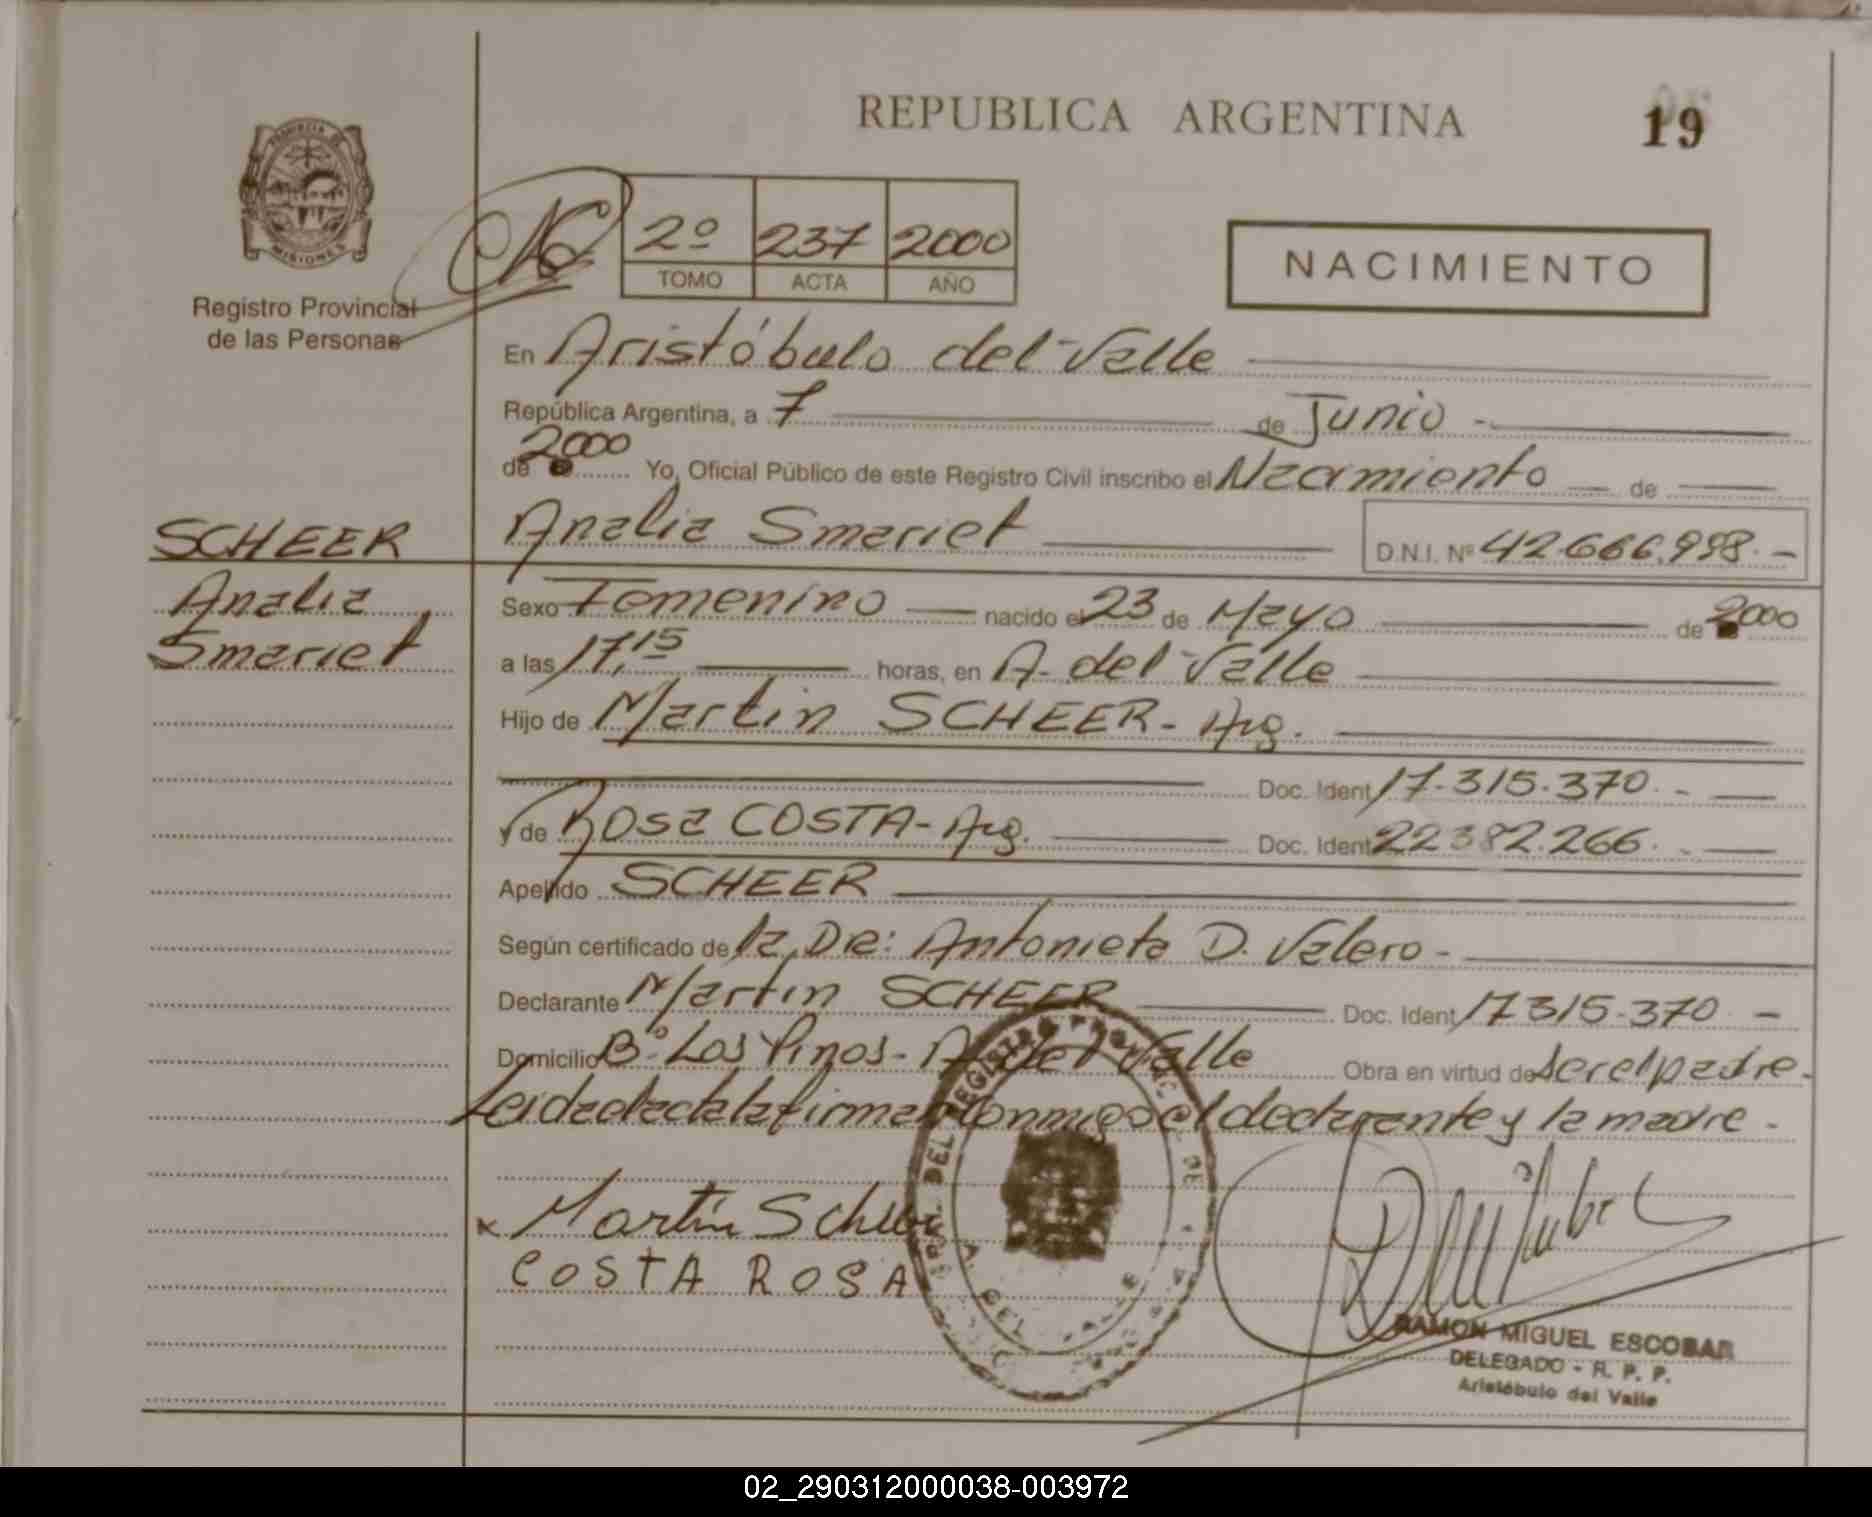 REPUBLICA ARGENTINA
19
PROVINCIA DE
MISIONES
Registro Provincial
de las Personas
2º 237 2000
TOMO ACTA AÑO
NACIMIENTO
En Aristóbulo del Valle
República Argentina, a 7 de Junio -
de 2000 Yo, Oficial Público de este Registro Civil inscribo el Nacimiento de
SCHEER
Analia
Smariet
Analia Smariet D.N.I. Nº 42.666.998.-
Sexo Femenino nacido el 23 de Mayo de 2000
a las 17,15 horas, en A. del Valle
Hijo de Martin SCHEER - Arg.
Doc. Ident 17.315.370.-
y de Rosa COSTA - Arg. Doc. Ident 22.382.266.-
Apellido SCHEER
Según certificado de la Dra: Antonieta D. Valero -
Declarante Martin SCHEER Doc. Ident 17315.370 -
Domicilio Bº Los Pinos - A. del Valle Obra en virtud de ser el padre.
Leida el acta la firman conmigo el declarante y la madre.
x Martín Scheer
COSTA ROSA
RAMON MIGUEL ESCOBAR
DELEGADO - R. P. P.
Aristóbulo del Valle
02_290312000038-003972